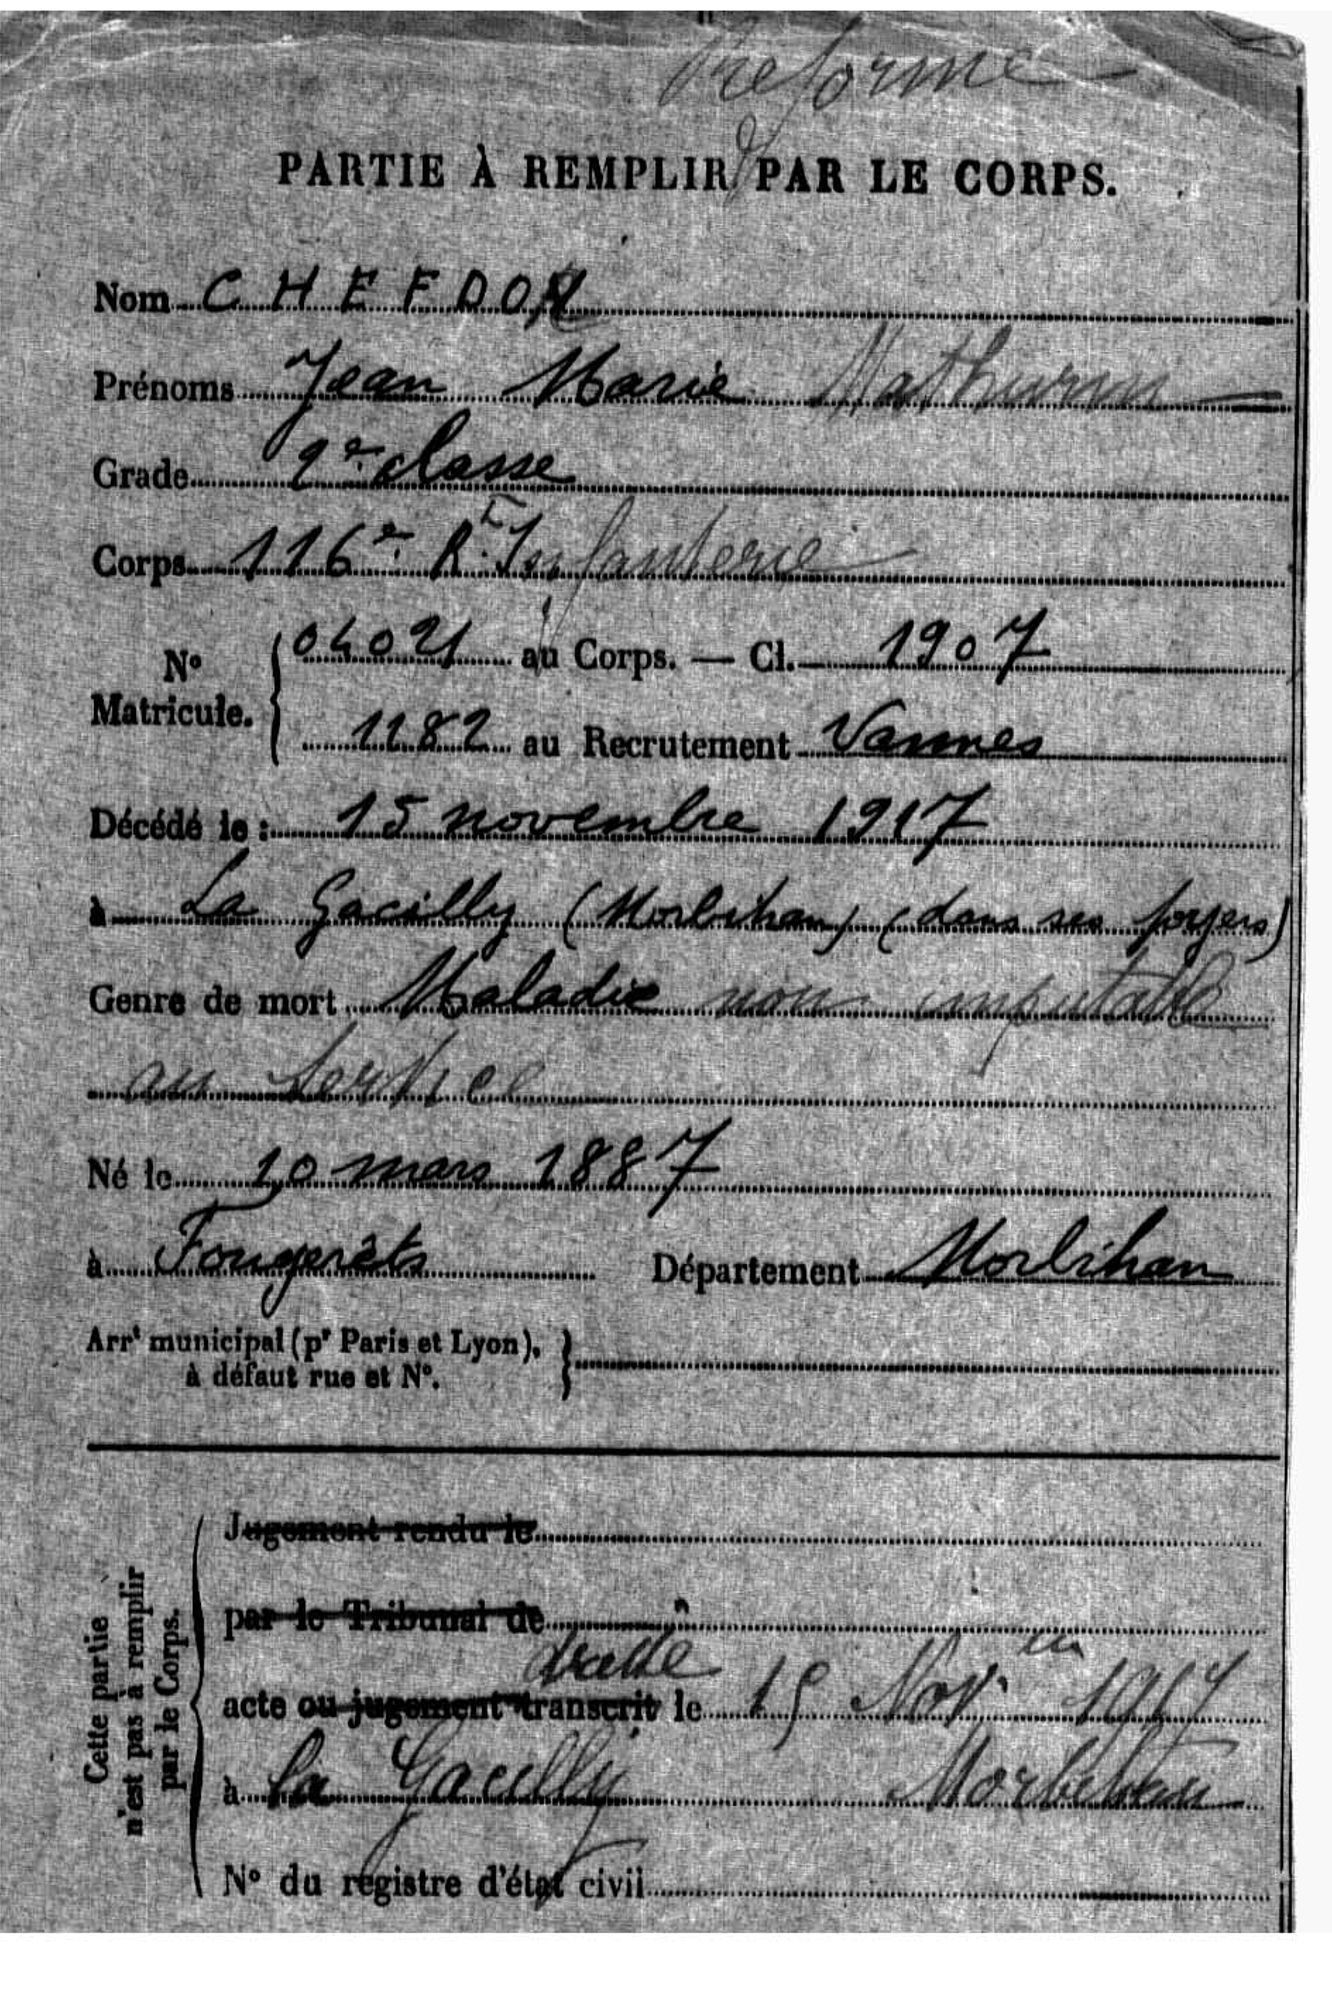 Réformé
PARTIE À REMPLIR PAR LE CORPS.
Nom CHEFDOR
Prénoms Jean Marie Mathurin
Grade 2e classe
Corps 116e Rt Infanterie
No Matricule. 04021 au Corps. — Cl. 1907
1182 au Recrutement Vannes
Décédé le : 15 novembre 1917
à La Gacilly (Morbihan) (dans ses foyers)
Genre de mort Maladie non imputable
au service
Né le 10 mars 1887
à Fougerêts Département Morbihan
Arrt municipal (pr Paris et Lyon),
à défaut rue et No.
Cette partie
n'est pas à remplir
par le Corps.
Jugement rendu le
par le Tribunal de
acte ou jugement transcrit le 15 Novbre 1917
à La Gacilly Morbihan
No du registre d'état civil